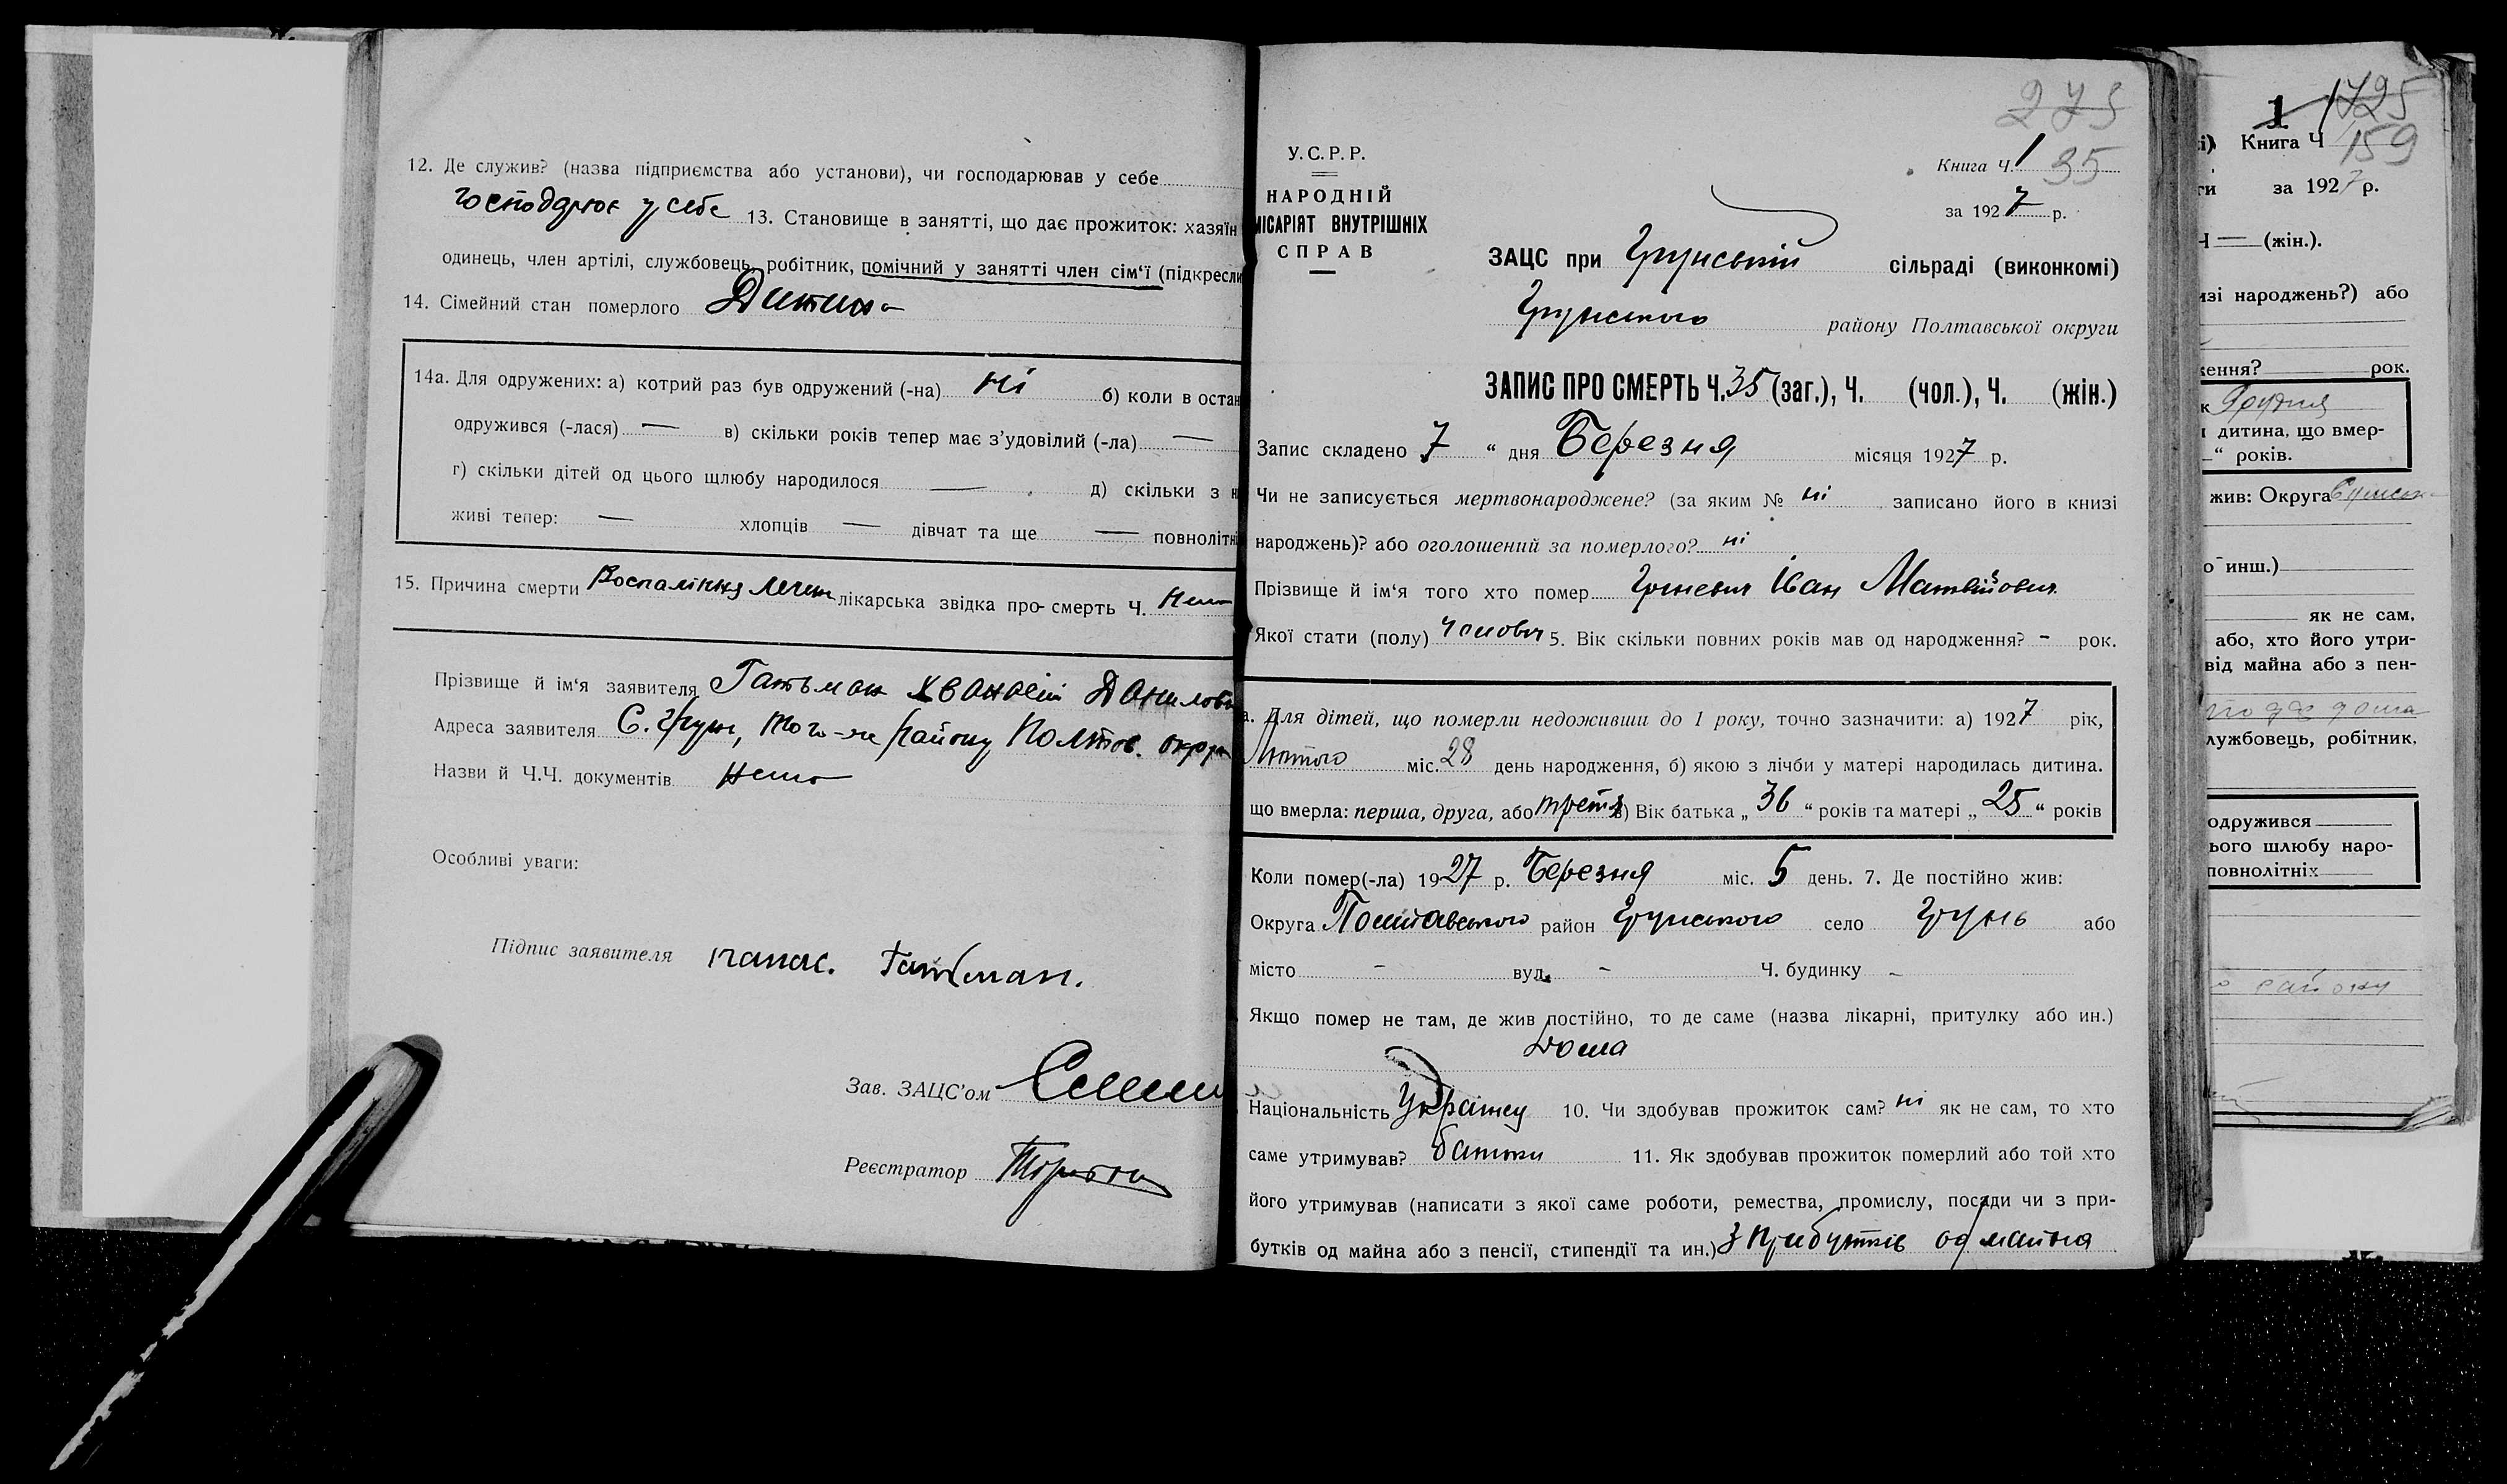 12. Де служив? (назва підприємства або установи), чи господарював у себе
господарює у себе 13. Становище в занятті, що дає прожиток: хазяїн
одинець, член артілі, службовець, робітник, помічний у занятті член сім'ї (підкресли
14. Сімейний стан померлого Дитина
14а. Для одружених: а) котрий раз був одружений (-на) ні б) коли в остан
одружився (-лася) — в) скільки років тепер має з'удовілий (-ла) —
г) скільки дітей од цього шлюбу народилося — д) скільки з н
живі тепер: — хлопців — дівчат та ще — повнолітні
15. Причина смерти Воспаління легень лікарська звідка про смерть Ч. Нема
Прізвище й ім'я заявителя Гатьман Данилов
Адреса заявителя С. Грунь, того-ж району Полтав. округи
Назви й Ч.Ч. документів Нема
Особливі уваги:
Підпис заявителя Панас. Гатьман.
Зав. ЗАЦС'ом
Реєстратор
275
У.С.Р.Р.
НАРОДНІЙ
МІСАРІЯТ ВНУТРІШНІХ
СПРАВ
Книга Ч. 1 35
за 1927 р.
ЗАЦС при Грунській сільраді (виконкомі)
Грунського району Полтавської округи
ЗАПИС ПРО СМЕРТЬ Ч. 35 (заг.), Ч. (чол.), Ч. (жін.)
Запис складено 7 " дня Березня місяця 1927 р.
Чи не записується мертвонароджене? (за яким № ні записано його в книзі
народжень)? або оголошений за померлого? ні
Прізвище й ім'я того хто помер Іван Матвійович
Якої стати (полу) чоловіч 5. Вік скільки повних років мав од народження? - рок.
а. Для дітей, що померли недоживши до 1 року, точно зазначити: а) 1927 рік,
Лютого міс. 28 день народження, б) якою з лічби у матері народилась дитина.
що вмерла: перша, друга, або третя в) Вік батька „ 36 “ років та матері „ 25 “ років
Коли помер(-ла) 1927 р. Березня міс. 5 день. 7. Де постійно жив:
Округа Полтавського район Грунського село Грунь або
місто - вул. - Ч. будинку -
Якщо помер не там, де жив постійно, то де саме (назва лікарні, притулку або ин.)
Дома
Національність Українец 10. Чи здобував прожиток сам? ні як не сам, то хто
саме утримував? батьки 11. Як здобував прожиток померлий або той хто
його утримував (написати з якої саме роботи, ремества, промислу, посади чи з при-
бутків од майна або з пенсії, стипендії та ин.) З прибутків од майна
1 1725
і) Книга Ч 159
ги за 1927 р.
Ч — (жін.).
изі народжень?) або
ження? рок.
к Грудня
и дитина, що вмер-
“ років.
жив: Округа
о инш.)
як не сам,
або, хто його утри-
від майна або з пен-
лужбовець, робітник,
одружився
ього шлюбу наро-
повнолітніх
району